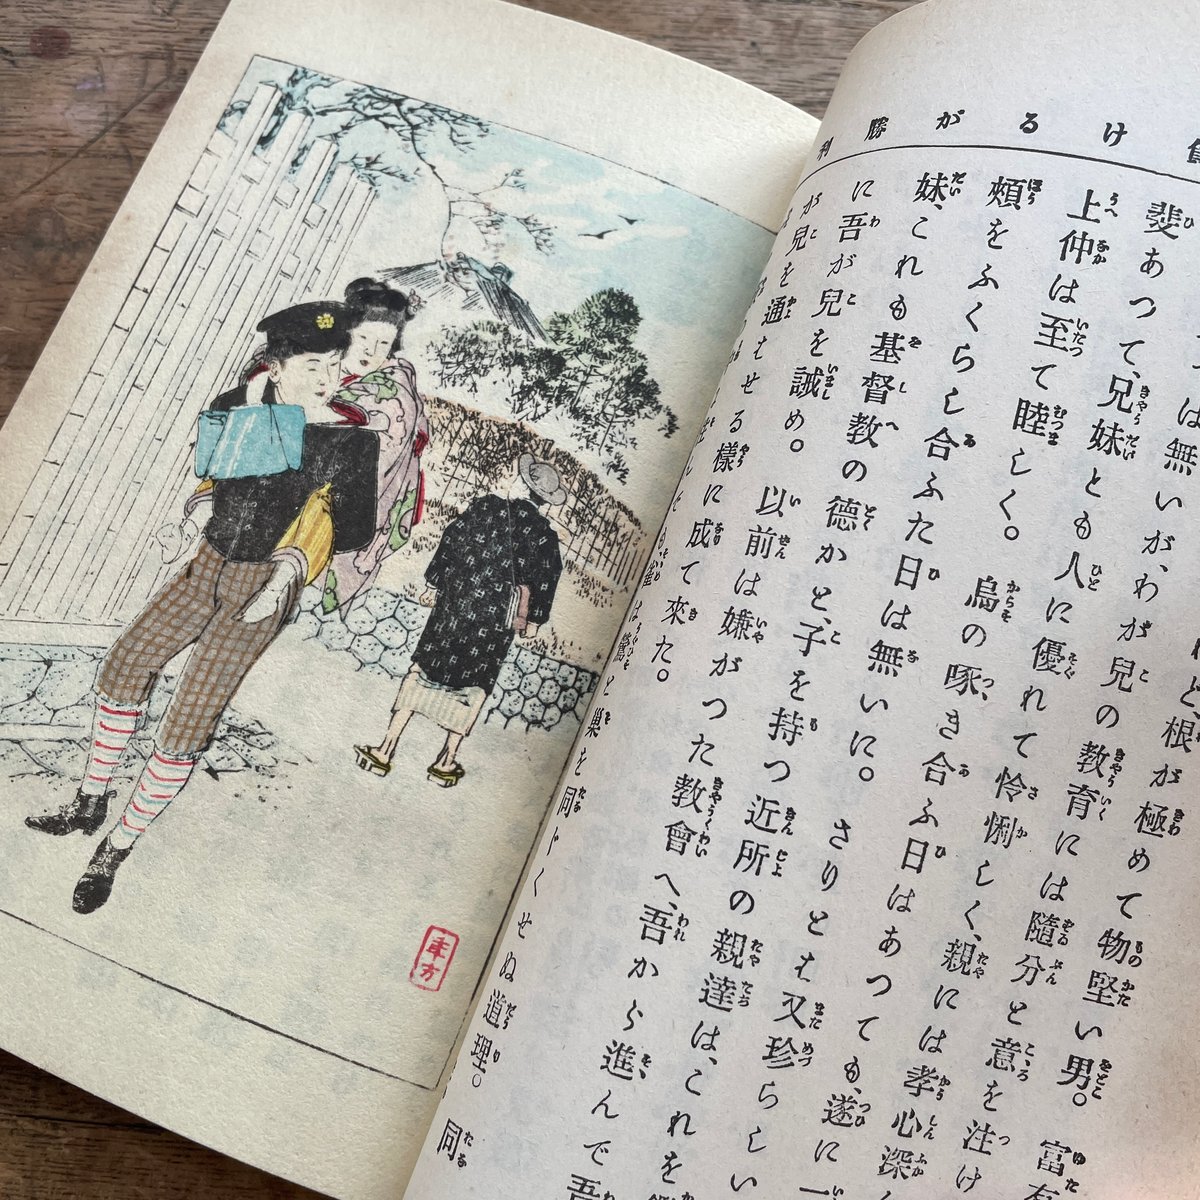 負けるが勝利
れと根が極めて物堅い男。 富有
は無いが、わが兒の教育には隨分と意を注け
斐あつて、兄妹とも人に優れて怜悧しく、親には孝心深
上仲は至て睦しく。 烏の啄き合ふ日はあつても、遂に一
頬をふくらし合ふた日は無いに。 さりとは又珍らしい
妹、これも基督教の德かと、子を持つ近所の親達は、これを
に吾が兒を誡め。 以前は嫌がつた敎會へ、吾から進んで吾
が兒を通はせる樣に成て來た。
鷺と巢を同じくせぬ道理。 同
年方